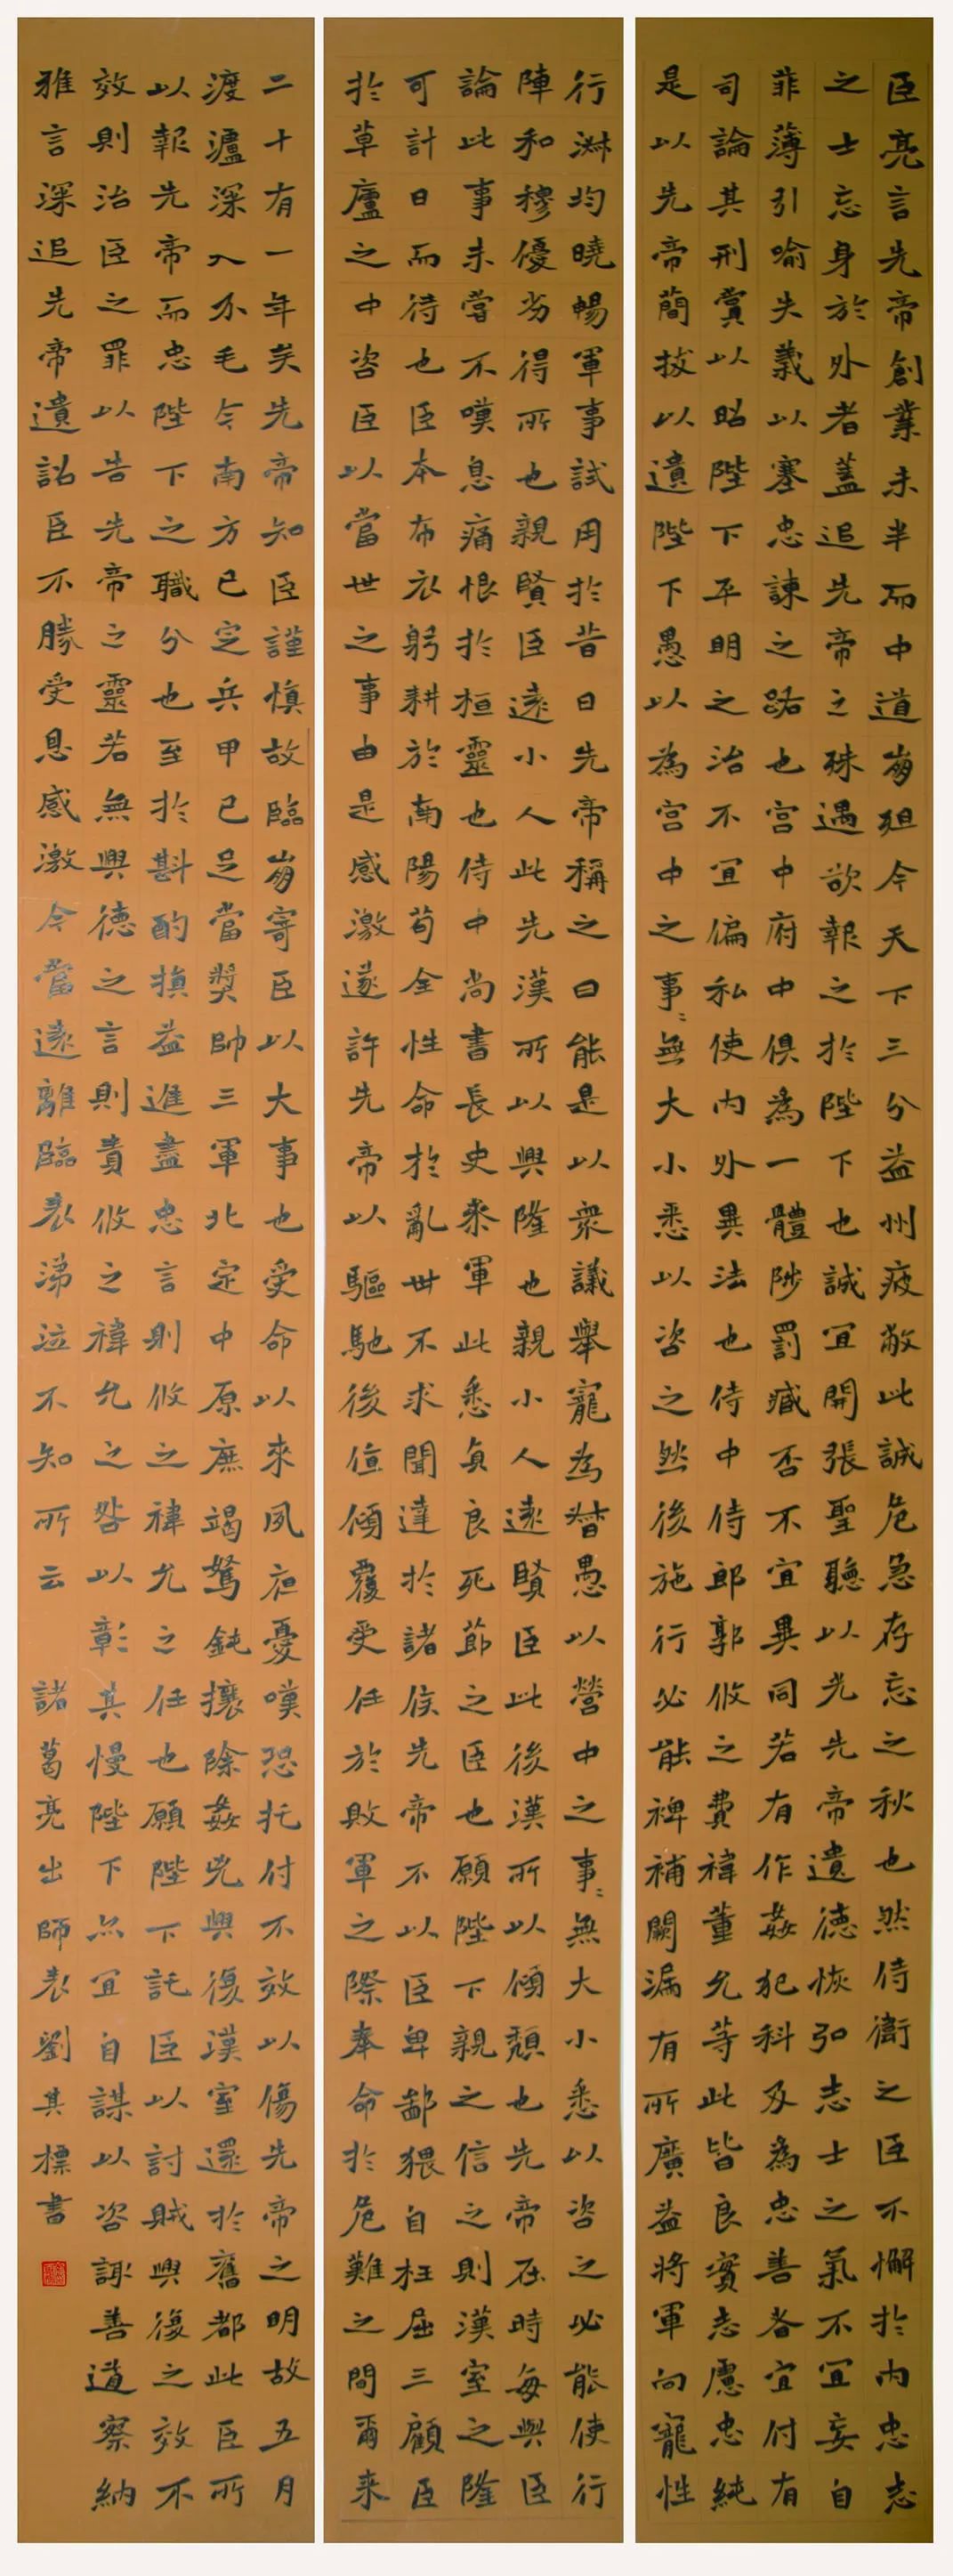 臣亮言先帝創業未半而中道崩殂今天下三分益州疲敝此誠危急存忘之秋也然侍衛之臣不懈於內忠志
之士忘身於外者蓋追先帝之殊遇欲報之於陛下也誠宜開張聖聽以光先帝遺德恢弘志士之氣不宜妄自
菲薄引喻失義以塞忠諫之路也宮中府中俱為一體陟罰臧否不宜異同若有作姦犯科及為忠善者宜付有
司論其刑賞以昭陛下平明之治不宜偏私使內外異法也侍中侍郎郭攸之費禕董允等此皆良實志慮忠純
是以先帝簡拔以遺陛下愚以為宮中之事〻無大小悉以咨之然後施行必能裨補闕漏有所廣益將軍向寵性
行淑均曉暢軍事試用於昔日先帝稱之曰能是以眾議舉寵為督愚以營中之事〻無大小悉以咨之必能使行
陣和穆優劣得所也親賢臣遠小人此先漢所以興隆也親小人遠賢臣此後漢所以傾頹也先帝在時每與臣
論此事未嘗不嘆息痛恨於桓靈也侍中尚書長史參軍此悉貞良死節之臣也願陛下親之信之則漢室之隆
可計日而待也臣本布衣躬耕於南陽苟全性命於亂世不求聞達於諸侯先帝不以臣卑鄙猥自枉屈三顧臣
於草廬之中咨臣以當世之事由是感激遂許先帝以驅馳後值傾覆受任於敗軍之際奉命於危難之間爾來
二十有一年矣先帝知臣謹慎故臨崩寄臣以大事也受命以來夙夜憂嘆恐托付不效以傷先帝之明故五月
渡瀘深入不毛今南方已定兵甲已足當獎帥三軍北定中原庶竭駑鈍攘除姦兇興復漢室還於舊都此臣所
以報先帝而忠陛下之職分也至於斟酌損益進盡忠言則攸之禕允之任也願陛下託臣以討賊興復之效不
效則治臣之罪以告先帝之靈若無興德之言則責攸之禕允之咎以彰其慢陛下亦宜自謀以咨諏善道察納
雅言深追先帝遺詔臣不勝受恩感激今當遠離臨表涕泣不知所云 諸葛亮出師表劉其標書